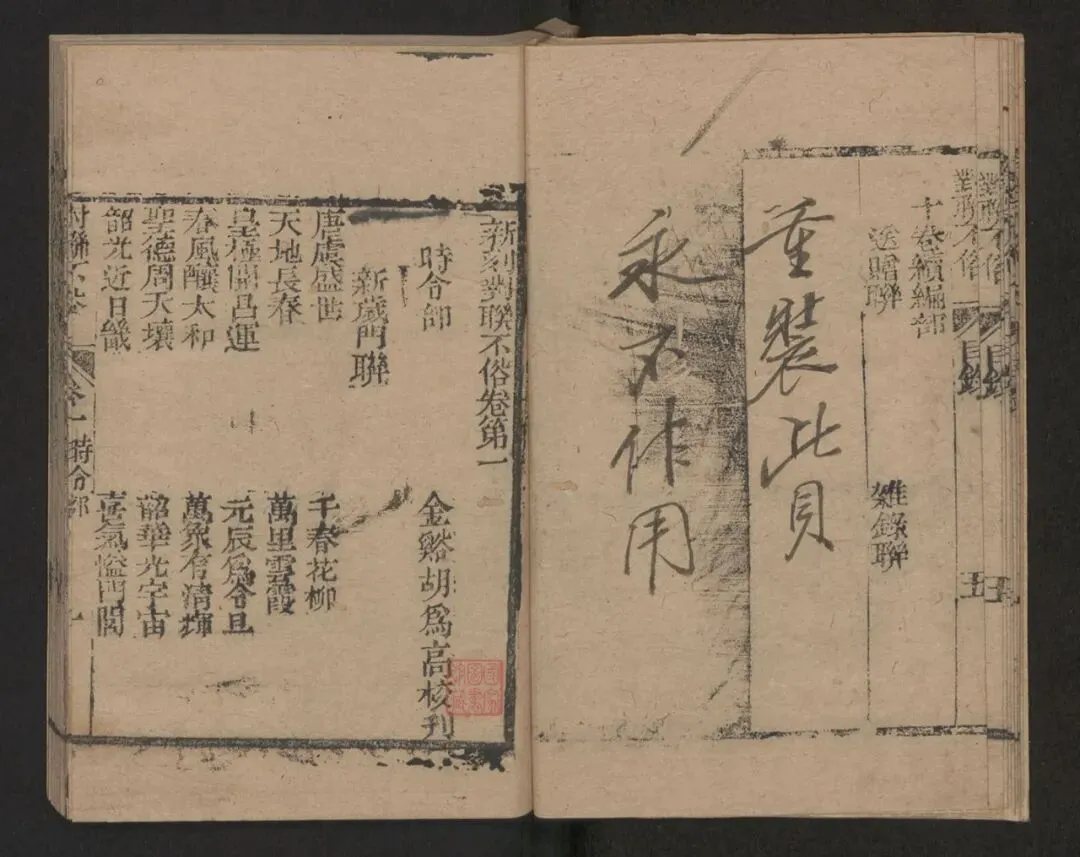 對聯不俗
目錄
五
十卷續編部
送贈聯
雜錄聯
重裝此頁
永不作用
新刻對聯不俗卷第一
時令部
金谿胡為高校刊
新歲門聯
唐虞盛世
千春花柳
天地長春
萬里雲霞
皇極開昌運
元辰爲令旦
春風釀太和
萬象有清暉
聖德周天壤
韶華光宇宙
韶光近日畿
喜氣溢門閭
對聯不俗
卷一
時令部
一